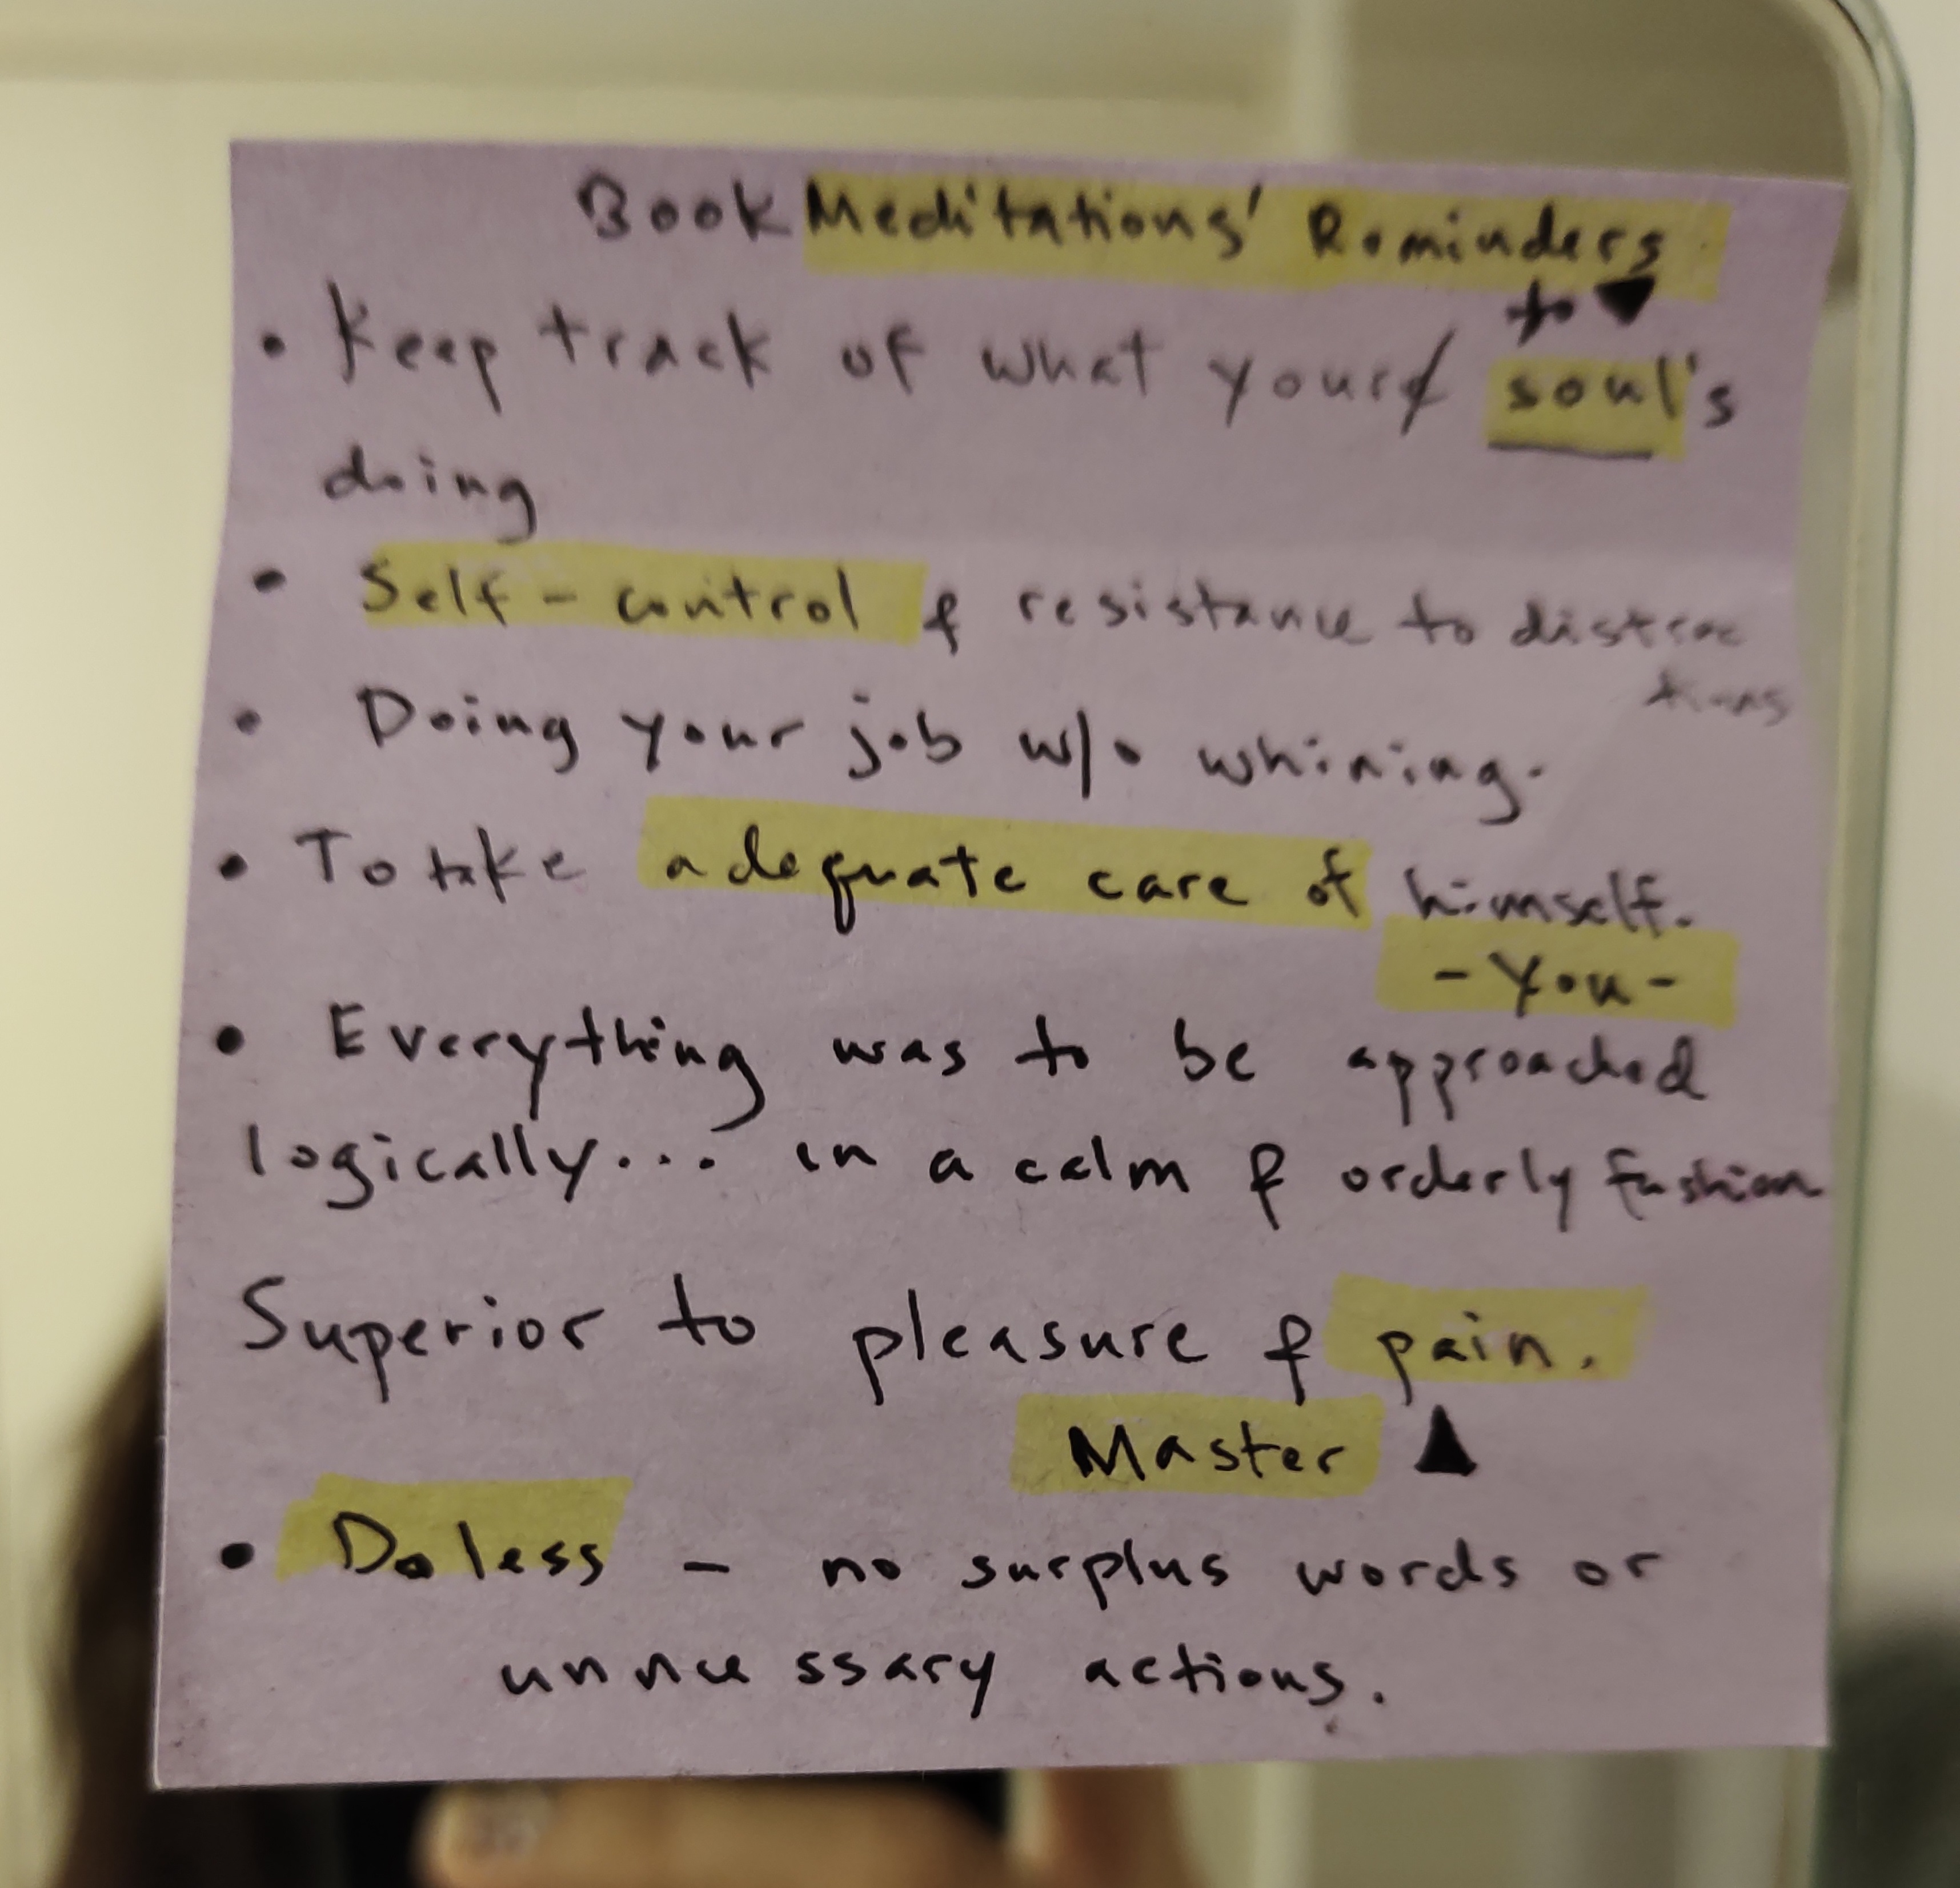 Book Meditations' Reminders
to ▼
• Keep track of what your soul's
doing
• Self-control & resistance to distrac
tions
• Doing your job w/o whining.
• To take adequate care of himself.
-You-
• Everything was to be approached
logically... in a calm & orderly fashion
Superior to pleasure & pain.
Master ▲
• Do less - no surplus words or
unnecessary actions.